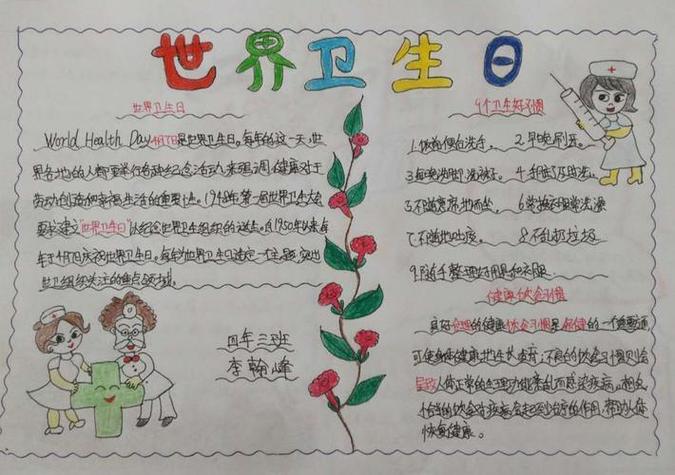 世界卫生日
世界卫生日
World Health Day 4月7日是世界卫生日。每年的这一天,世
界各地的人都要举行各种纪念活动,来强调健康对于
劳动创造和幸福生活的重要性。1948年第一届世界卫生大会
要求建立"世界卫生日"以纪念世界卫生组织的诞生。自1950年以来每
年于4月7日庆祝世界卫生日。每年为世界卫生日选定一个主题,突出
世卫组织关注的重点领域。
四年三班
李翰峰
9个卫生好习惯
1.饭前便后洗手。 2.早晚刷牙。
3.每晚洗脚、洗袜子。 4.利剪
5.不随意席地而坐。 6.常换衣服常洗澡
7.不随地吐痰。 8.不乱扔垃圾
9.随手整理好用具和衣服
健康饮食习惯
良好合理的健康饮食习惯是保健的一个重要
可使身体健康地生长发育;不良的饮食习惯则会
导致人体正常的生理功能紊乱而感染疾病。相反
恰当的饮食对疾病会起到治疗的作用,帮助人体
恢复健康。